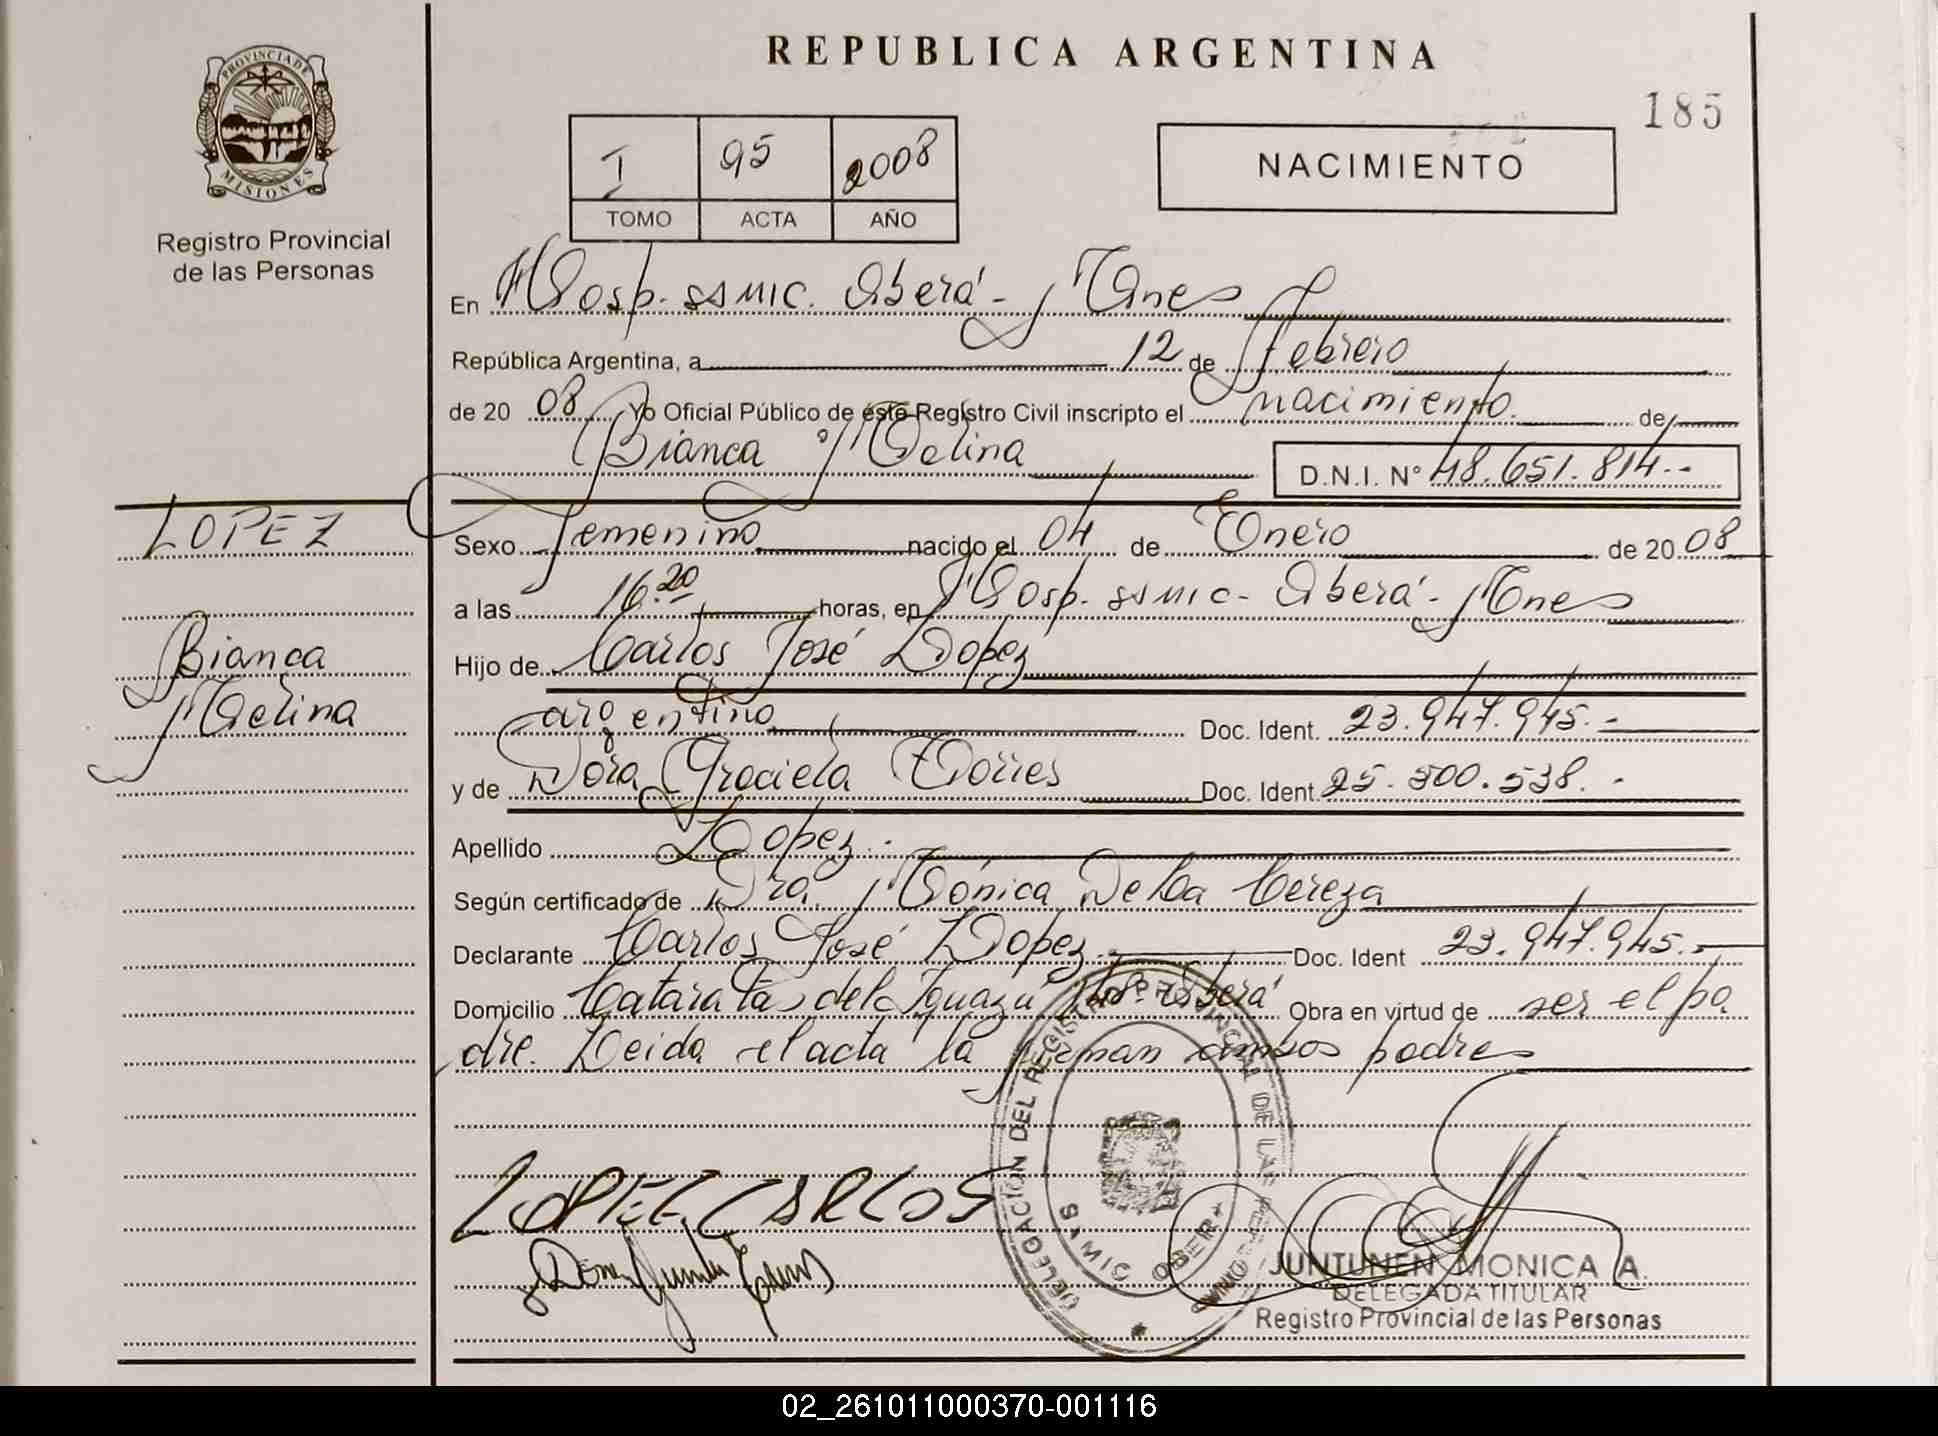 REPUBLICA ARGENTINA
185
PROVINCIA DE
MISIONES
Registro Provincial
de las Personas
I 95 2008
TOMO ACTA AÑO
NACIMIENTO
En Hosp. SSMIC. Oberá - Mnes
República Argentina, a 12 de Febrero
de 20 08 Yo Oficial Público de este Registro Civil inscripto el nacimiento. de
Bianca Melina D.N.I. N° 48.651.814.-
LOPEZ
Bianca
Melina
Sexo femenino nacido el 04 de Enero de 20 08
a las 16.20 horas, en Hosp. SSMIC - Oberá - Mnes
Hijo de Carlos José Lopez
argentino Doc. Ident. 23.947.945.-
y de Dora Graciela Torres Doc. Ident. 25.500.538.-
Apellido Lopez.-
Según certificado de Dra. Mónica De La Cereza
Declarante Carlos José Lopez.- Doc. Ident 23.947.945.-
Domicilio Cataratas del Iguazú Oberá Obra en virtud de ser el pa
dre. Leida el acta la firman ambos padres
LOPEZ CARLOS
DELEGACIÓN DEL REGISTRO PROVINCIAL DE LAS PERSONAS
JUNTUNEN MONICA A.
DELEGADA TITULAR
Registro Provincial de las Personas
02_261011000370-001116